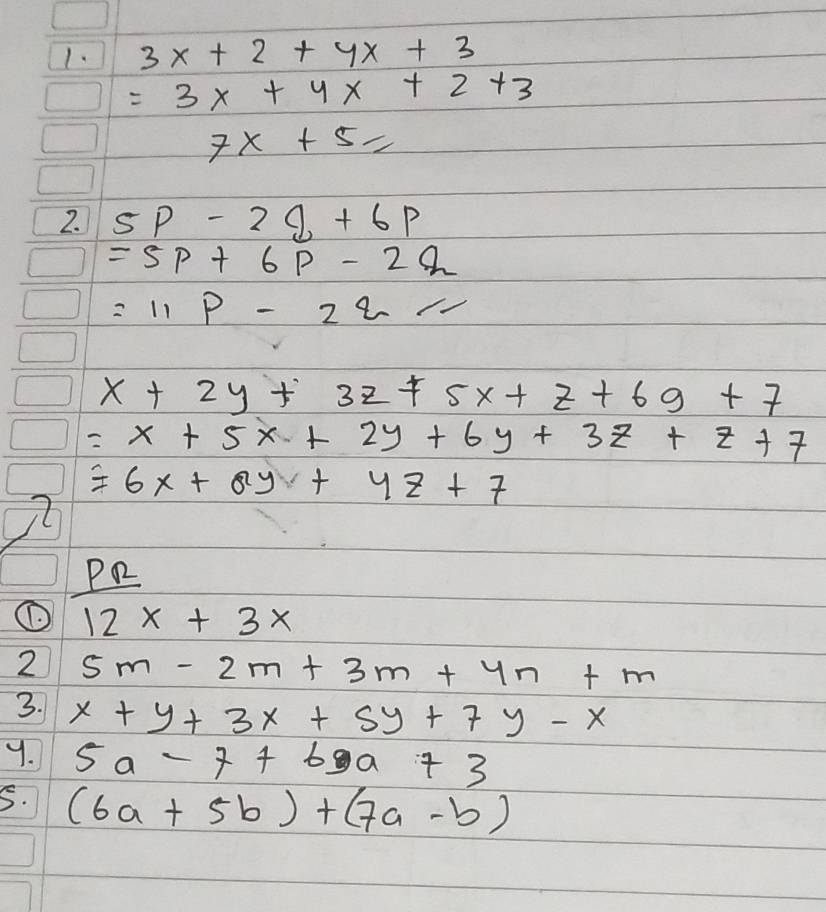 1. 3x + 2 + 4x + 3
= 3x + 4x + 2 + 3
7x + 5 //
2. 5p - 2q + 6p
= 5p + 6p - 2q
= 11p - 2q //
x + 2y + 3z + 5x + z + 6y + 7
= x + 5x + 2y + 6y + 3z + z + 7
= 6x + 8y + 4z + 7
PR
1. 12x + 3x
2 5m - 2m + 3m + 4n + m
3. x + y + 3x + 5y + 7y - x
4. 5a - 7 + 6a + 3
5. (6a + 5b) + (7a - b)